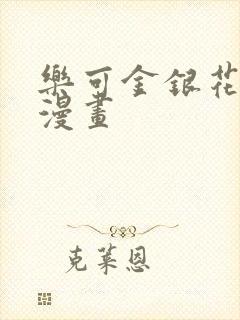 樂可金銀花
漫畫
克萊恩